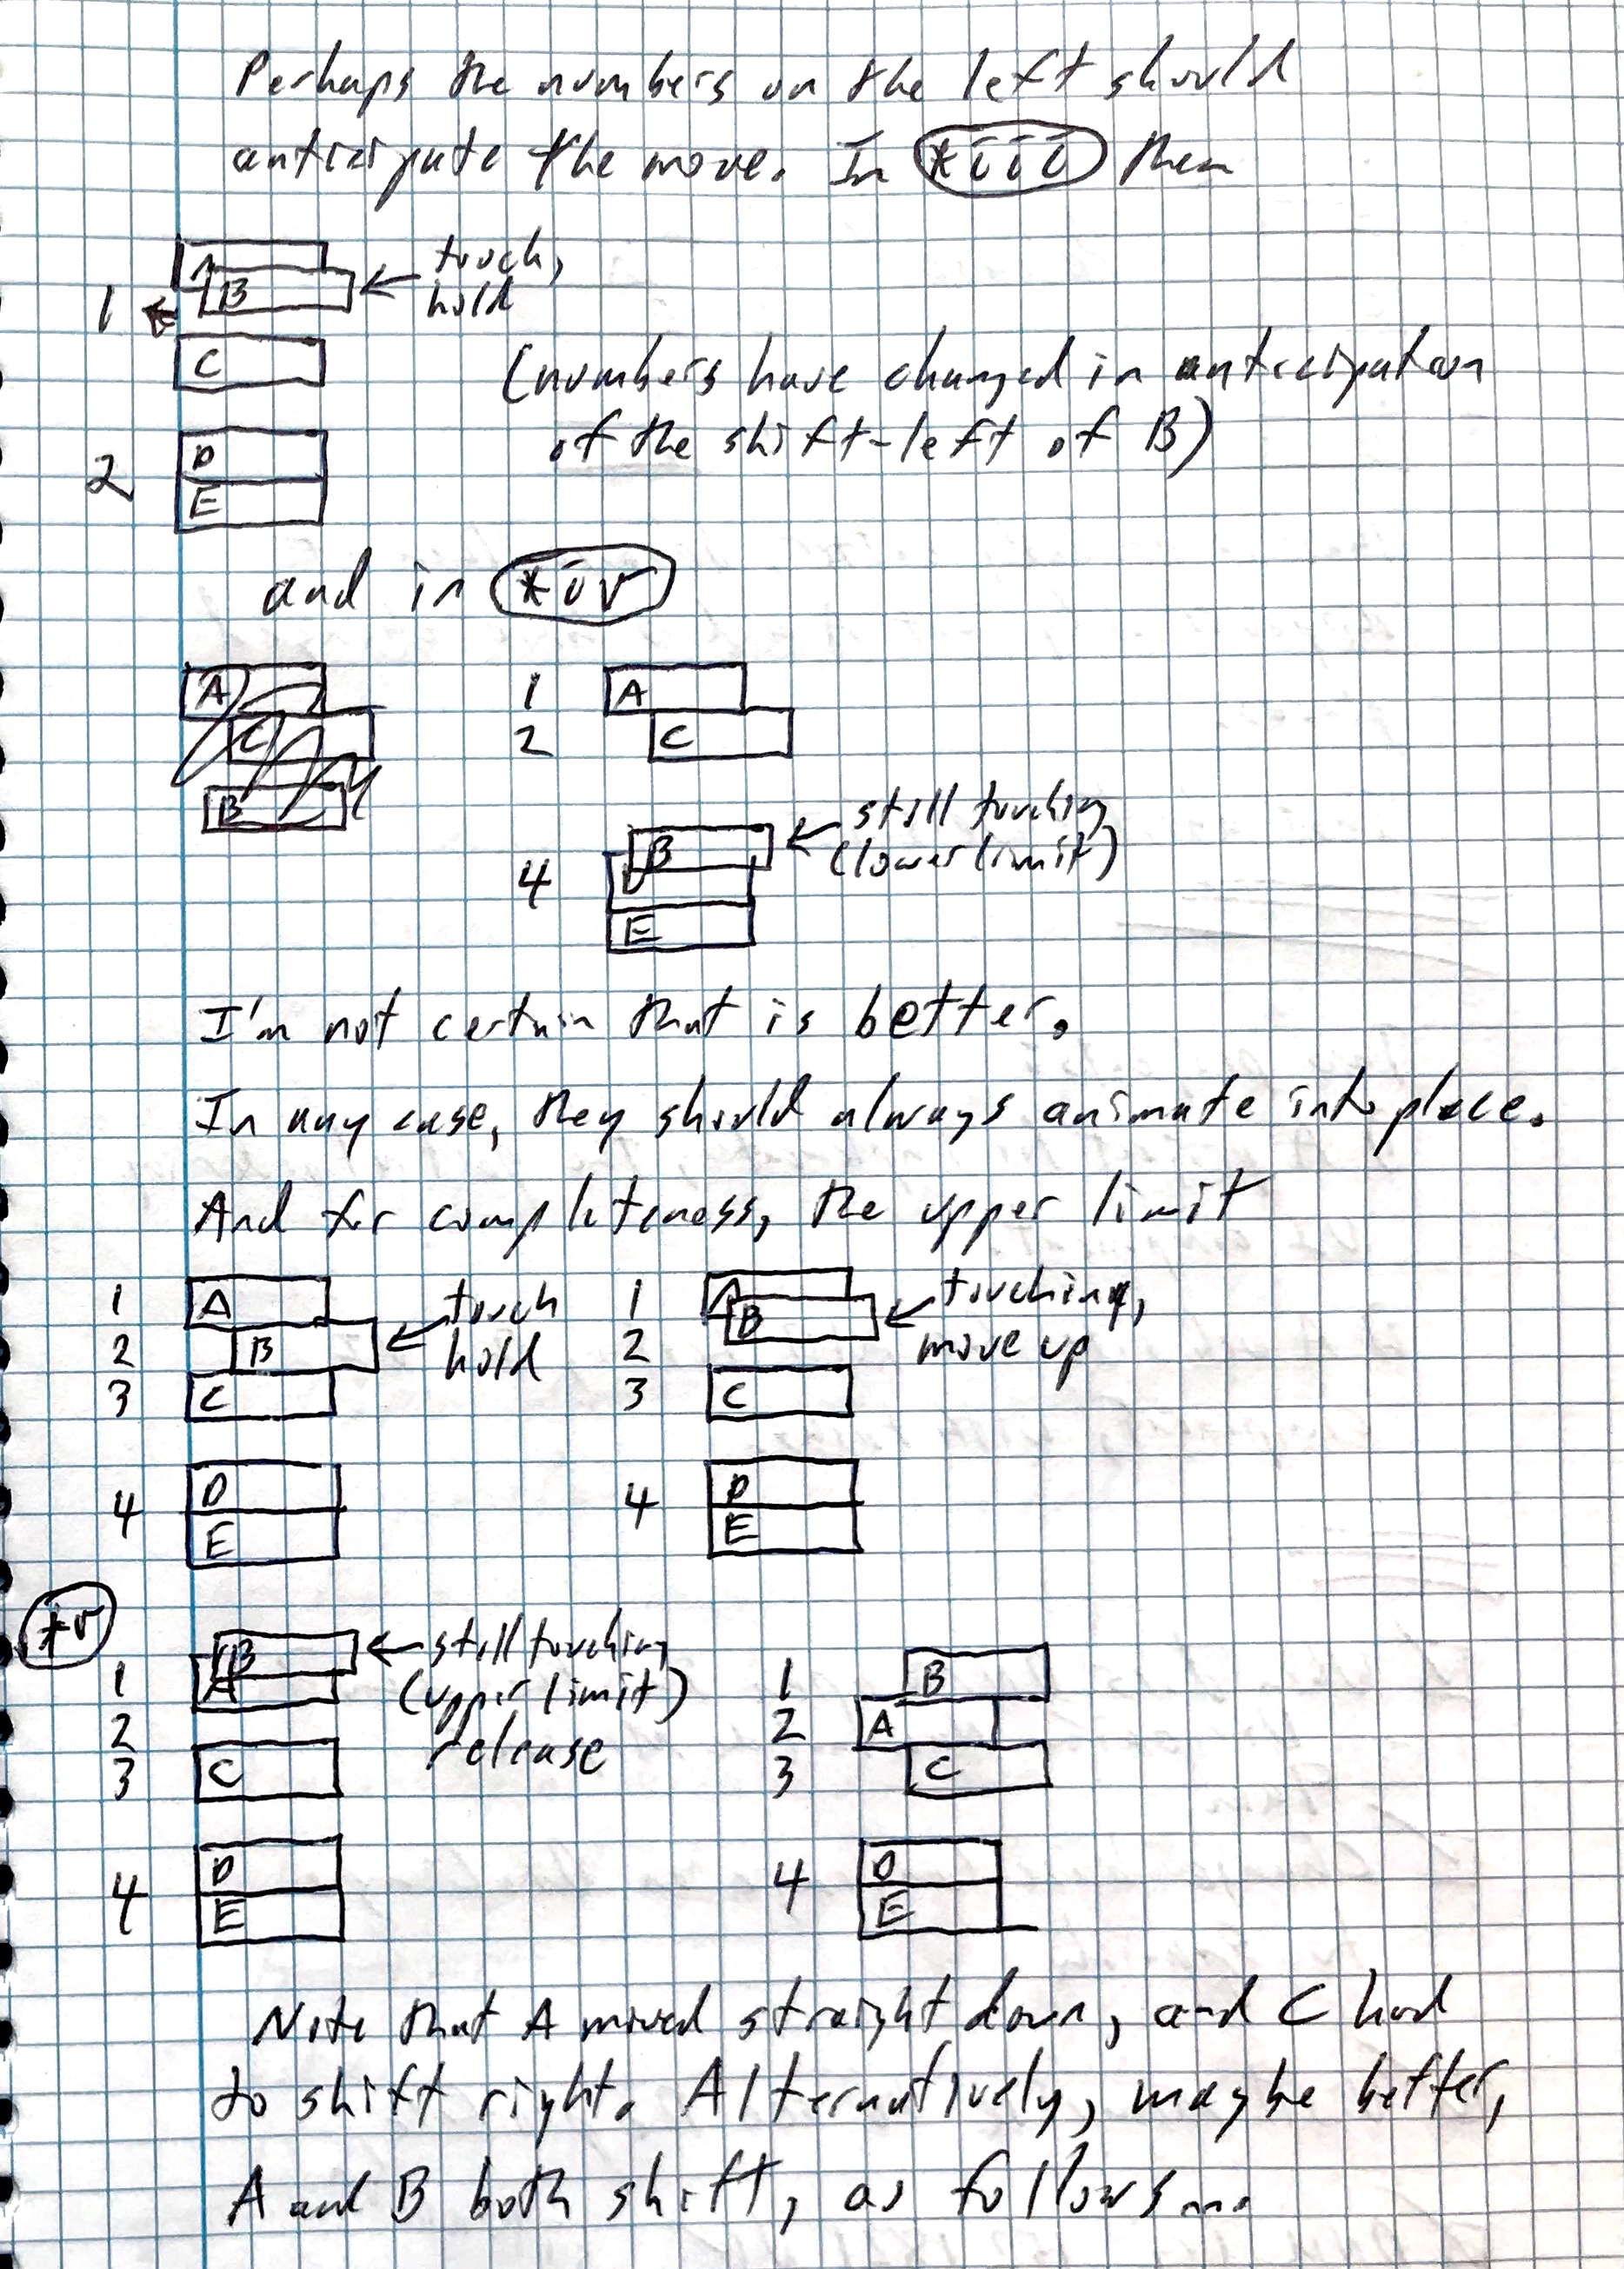 Perhaps the numbers on the left should
anticipate the move. In *iii then
A
B
← touch,
hold
1 ←
C
(numbers have changed in anticipation
of the shift-left of B)
2
D
E
and in *iv
A
C
B
1 A
2 C
B
← still touching
(lower limit)
4 D
E
I'm not certain that is better.
In any case, they should always animate into place.
And for completeness, the upper limit
1 A
2 B ← touch
hold
3 C
4 D
E
1 A
B ← touching,
move up
2
3 C
4 D
E
*v
B ← still touching
(upper limit)
release
1 A
2
3 C
4 D
E
1 B
2 A
3 C
4 D
E
Note that A moved straight down, and C had
to shift right. Alternatively, maybe better,
A and B both shift, as follows...